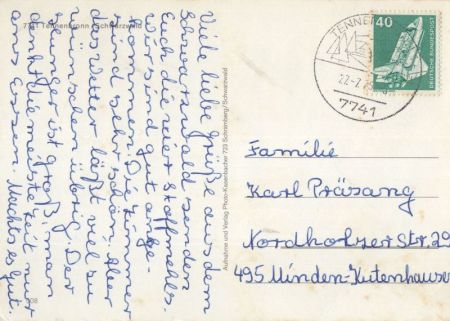 7741 Tennenbronn / Schwarzwald
Viele liebe Grüße aus dem
Schwarzwald senden
Euch die vier Stoffmehls.
Wir sind gut ange-
kommen. Die Zimmer
sind sehr schön. Aber
das Wetter läßt viel zu
wünschen übrig. Der
Hunger ist groß, man
denkt die meiste Zeit nur
ans Essen. Machts es gut
Aufnahme und Verlag Photo-Kasenbacher 723 Schramberg/Schwarzwald
908
TENNE
22.-7.
7741
40
DEUTSCHE BUNDESPOST
Familie
Karl Präsang
Nordholzer Str. 29
495 Minden-Kutenhausen